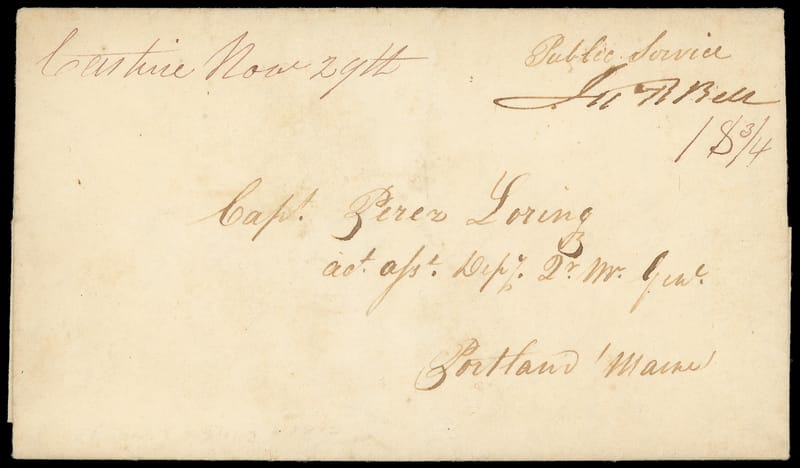 Castine Nov 29th
Public Service
Jn R Bell
18 3/4
Capt. Perez Loring
act. asst. Depy. Qr. Mr. Genl.
Portland 'Maine'